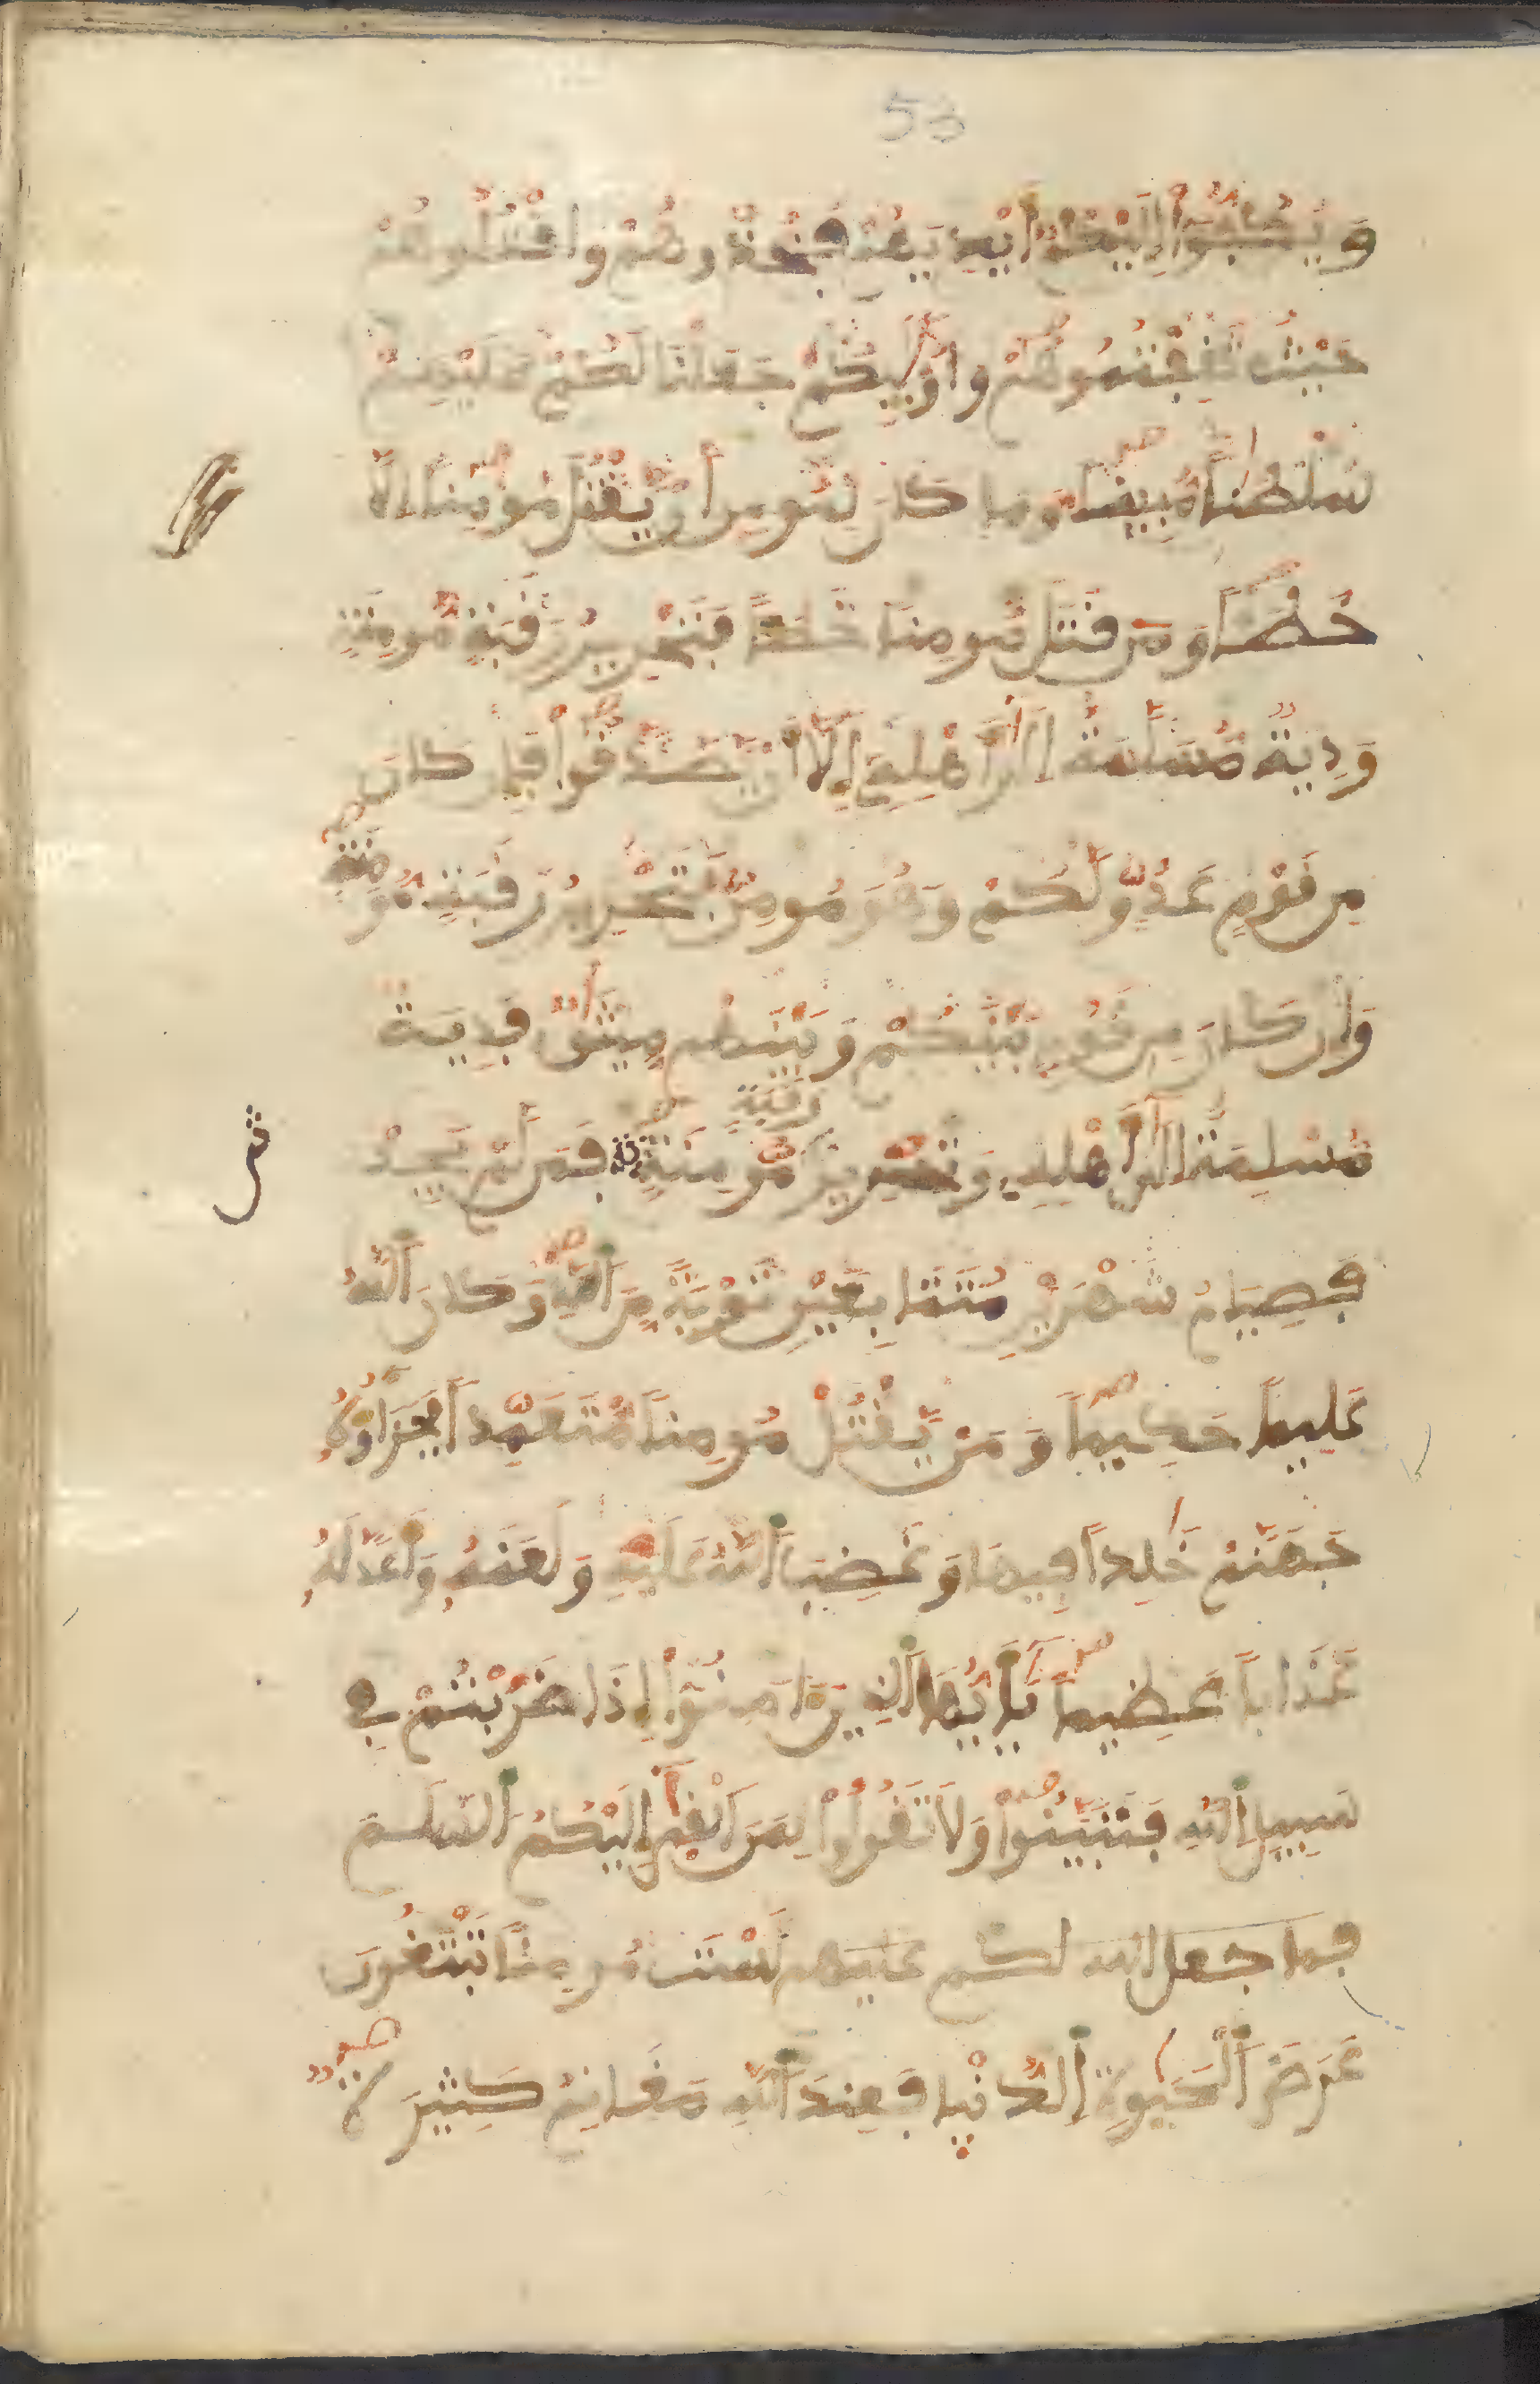 53
وَيَكُفُّوٓاْ إِلَيْكُمُۥٓ أَيْدِيَهُمْ فَخُذُوهُمْ وَاقْتُلُوهُمْ
حَيْثُ ثَقِفْتُمُوهُمْ وَأُوْلَٰٓئِكُمْ جَعَلْنَا لَكُمْ عَلَيْهِمْ
سُلْطَٰناً مُّبِيناً وَمَا كَانَ لِمُومِنٍ أَنْ يَّقْتُلَ مُومِناً اِلَّا
خَطَـٔاً وَمَن قَتَلَ مُومِناً خَطَـٔاً فَتَحْرِيرُ رَقَبَةٍ مُّومِنَةٍ
وَدِيَةٌ مُّسَلَّمَةٌ اِلَىٰٓ أَهْلِهِۦٓ إِلَّآ أَنْ يَّصَّدَّقُواْ فَإِن كَانَ
مِن قَوْمٍ عَدُوٍّ لَّكُمْ وَهُوَ مُومِنٌ فَتَحْرِيرُ رَقَبَةٍ مُّومِنَةٍ
وَإِن كَانَ مِن قَوْمٍ بَيْنَكُمْ وَبَيْنَهُم مِّيثَٰقٌ فَدِيَةٌ
مُّسْلِمَةٌ اِلَىٰٓ أَهْلِهِۦ وَتَحْرِيرُ رَقَبَةٍ مُّومِنَةٍ فَمَن لَّمْ يَجِدْ
ثمن
فَصِيَامُ شَهْرَيْنِ مُتَتَابِعَيْنِ تَوْبَةً مِّنَ اَللَّهِ وَكَانَ اَللَّهُ
عَلِيماً حَكِيماً وَمَنْ يَّقْتُلْ مُومِناً مُّتَعَمِّداً فَجَزَآؤُهُۥ
جَهَنَّمُ خَٰلِداً فِيهَا وَغَضِبَ اَللَّهُ عَلَيْهِ وَلَعَنَهُۥ وَأَعَدَّ لَهُۥ
عَذَاباً عَظِيماً يَٰٓأَيُّهَا اَلذِينَ ءَامَنُوٓاْ إِذَا ضَرَبْتُمْ فِے
سَبِيلِ اِللَّهِ فَتَبَيَّنُواْ وَلَا تَقُولُواْ لِمَنَ اَلْقَىٰٓ إِلَيْكُمُ اُلسَّلَمَ
فما جعل الله لكم عليهم لَسْتَ مُومِناً تَبْتَغُونَ
عَرَضَ اَلْحَيَوٰةِ اِلدُّنْيِا فَعِندَ اَللَّهِ مَغَانِمُ كَثِيرَةٌ